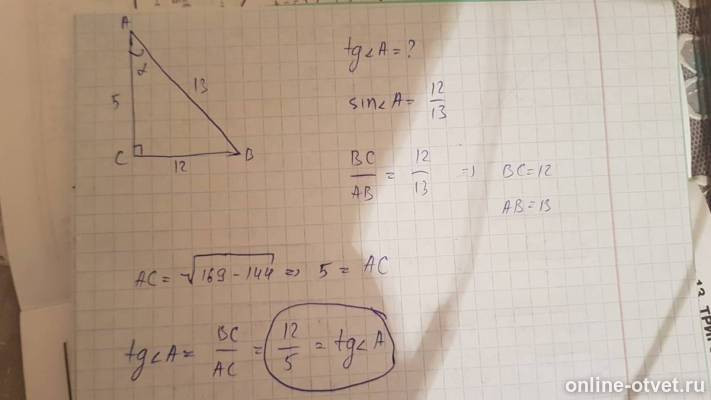 A
α
5
13
C
12
B
tg∠A = ?
sin∠A = 12/13
BC/AB = 12/13 ⇒ BC = 12
AB = 13
AC = √169 - 144 ⇒ 5 = AC
tg∠A = BC/AC = 12/5 = tg∠A
online-otvet.ru